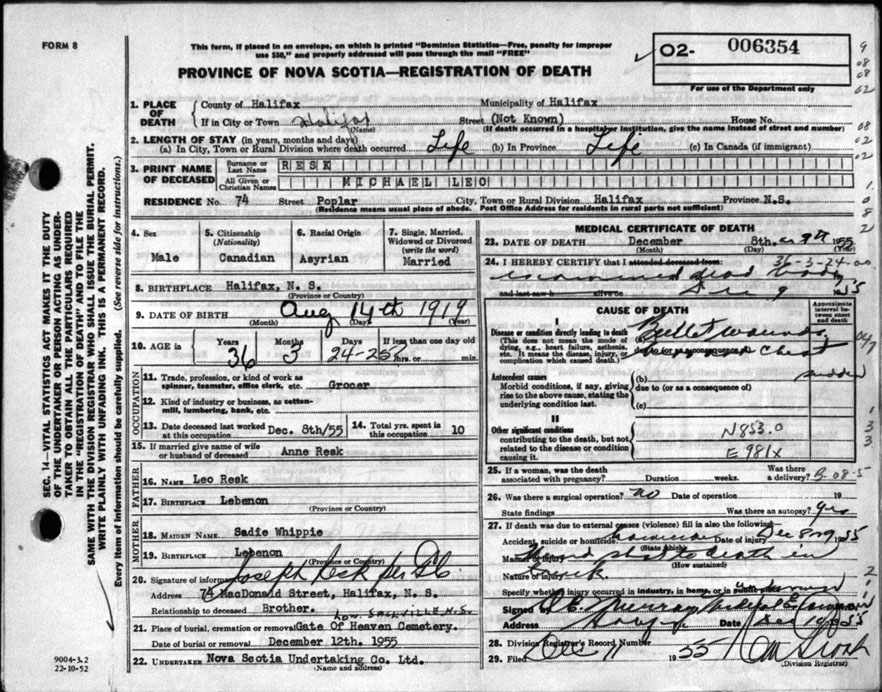 FORM 8
This form, if placed in an envelope, on which is printed "Dominion Statistics—Free, penalty for improper
use $50," and properly addressed will pass through the mail "FREE"
02- 006354
For use of the Department only
PROVINCE OF NOVA SCOTIA—REGISTRATION OF DEATH
SEC. 14—VITAL STATISTICS ACT MAKES IT THE DUTY
OF THE UNDERTAKER OR PERSON ACTING AS UNDER-
TAKER TO OBTAIN ALL THE PARTICULARS REQUIRED
IN THE "REGISTRATION OF DEATH" AND TO FILE THE
SAME WITH THE DIVISION REGISTRAR WHO SHALL ISSUE THE BURIAL PERMIT.
WRITE PLAINLY WITH UNFADING INK. THIS IS A PERMANENT RECORD.
Every item of information should be carefully supplied. (See reverse side for instructions.)
1. PLACE OF DEATH County of Halifax Municipality of Halifax
If in City or Town Halifax (Name) Street (Not Known) House No.
(If death occurred in a hospital or institution, give the name instead of street and number)
2. LENGTH OF STAY (in years, months and days)
(a) In City, Town or Rural Division where death occurred Life (b) In Province Life (c) In Canada (if immigrant)
3. PRINT NAME OF DECEASED Surname or Last Name RESK
All Given or Christian Names MICHAEL LEO
RESIDENCE No. 74 Street Poplar City, Town or Rural Division Halifax Province N.S.
(Residence means usual place of abode. Post Office Address for residents in rural parts not sufficient)
4. Sex Male
5. Citizenship (Nationality) Canadian
6. Racial Origin Assyrian
7. Single, Married, Widowed or Divorced (write the word) Married
8. BIRTHPLACE Halifax, N. S.
(Province or Country)
9. DATE OF BIRTH Aug 14th 1919
(Month) (Day) (Year)
10. AGE in Years 36 Months 3 Days 24-25 If less than one day old hrs. or min.
OCCUPATION
11. Trade, profession, or kind of work as spinner, teamster, office clerk, etc. Grocer
12. Kind of industry or business, as cotton-mill, lumbering, bank, etc.
13. Date deceased last worked at this occupation Dec. 8th/55
14. Total yrs. spent in this occupation 10
15. If married give name of wife or husband of deceased Anne Resk
FATHER
16. Name Leo Resk
17. Birthplace Lebenon
(Province or Country)
MOTHER
18. Maiden Name Sadie Whippie
19. Birthplace Lebenon
(Province or Country)
20. Signature of informant Joseph Resk per
Address 74 MacDonald Street, Halifax, N. S.
Relationship to deceased Brother.
Low. Sackville N.S.
21. Place of burial, cremation or removal Gate Of Heaven Cemetery.
Date of burial or removal December 12th. 1955
22. Undertaker Nova Scotia Undertaking Co. Ltd.
(Name and address)
9004-3.2
22-10-52
MEDICAL CERTIFICATE OF DEATH
23. DATE OF DEATH December 8th. or 9th 1955
(Month) (Day) (Year)
36-3-24-00
24. I HEREBY CERTIFY that I attended deceased from
examined dead body
and last saw h alive on Dec 9 55
CAUSE OF DEATH
Approximate interval between onset and death
I
Disease or condition directly leading to death
(This does not mean the mode of dying, e.g., heart failure, asthenia, etc. It means the disease, injury, or complication which caused death.)
Bullet wounds
chest
sudden
Antecedent causes
Morbid conditions, if any, giving rise to the above cause, stating the underlying condition last.
(b)
due to (or as a consequence of)
(c)
II
Other significant conditions
contributing to the death, but not related to the disease or condition causing it.
N853.0
E981X
25. If a woman, was the death associated with pregnancy? Duration weeks. Was there a delivery?
26. Was there a surgical operation? no Date of operation 19
State findings Was there an autopsy? yes
27. If death was due to external causes (violence) fill in also the following:
Accident, suicide or homicide? Date of injury Dec 8 or 9 1955
(State which)
Manner of injury shot to death in
(How sustained)
Nature of injury
Specify whether injury occurred in industry, in home, or in public place unknown
Signed Murray Medical Examiner
Address Date Dec 10 1955
28. Division Registrar's Record Number
29. Filed Dec 11 1955
(Division Registrar)